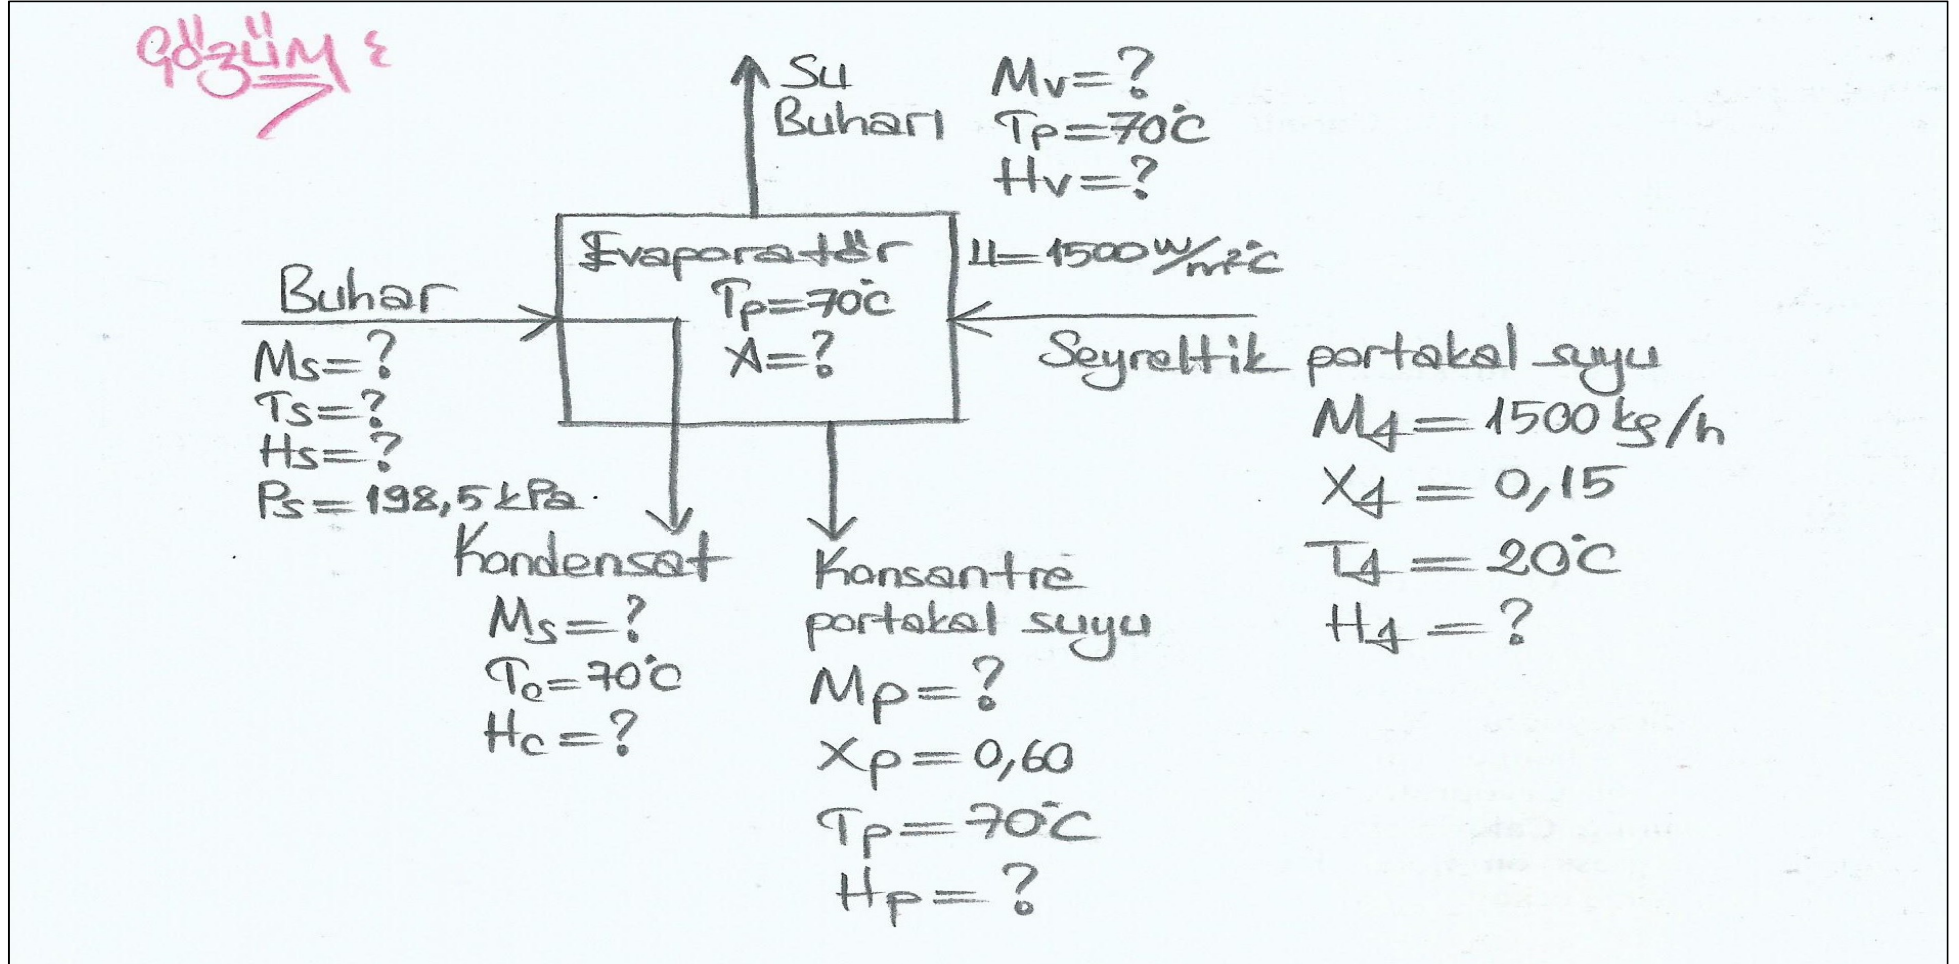 Çözüm:
Su
Buharı
Mv=?
Tp=70°C
Hv=?
Evaporatör
Tp=70°C
A=?
U=1500 W/m²°C
Buhar
Ms=?
Ts=?
Hs=?
Ps=198,5 kPa.
Seyreltik portakal suyu
Mf=1500 kg/h
Xf=0,15
Tf=20°C
Hf=?
Kondensat
Ms=?
Tc=70°C
Hc=?
Konsantre
portakal suyu
Mp=?
Xp=0,60
Tp=70°C
Hp=?